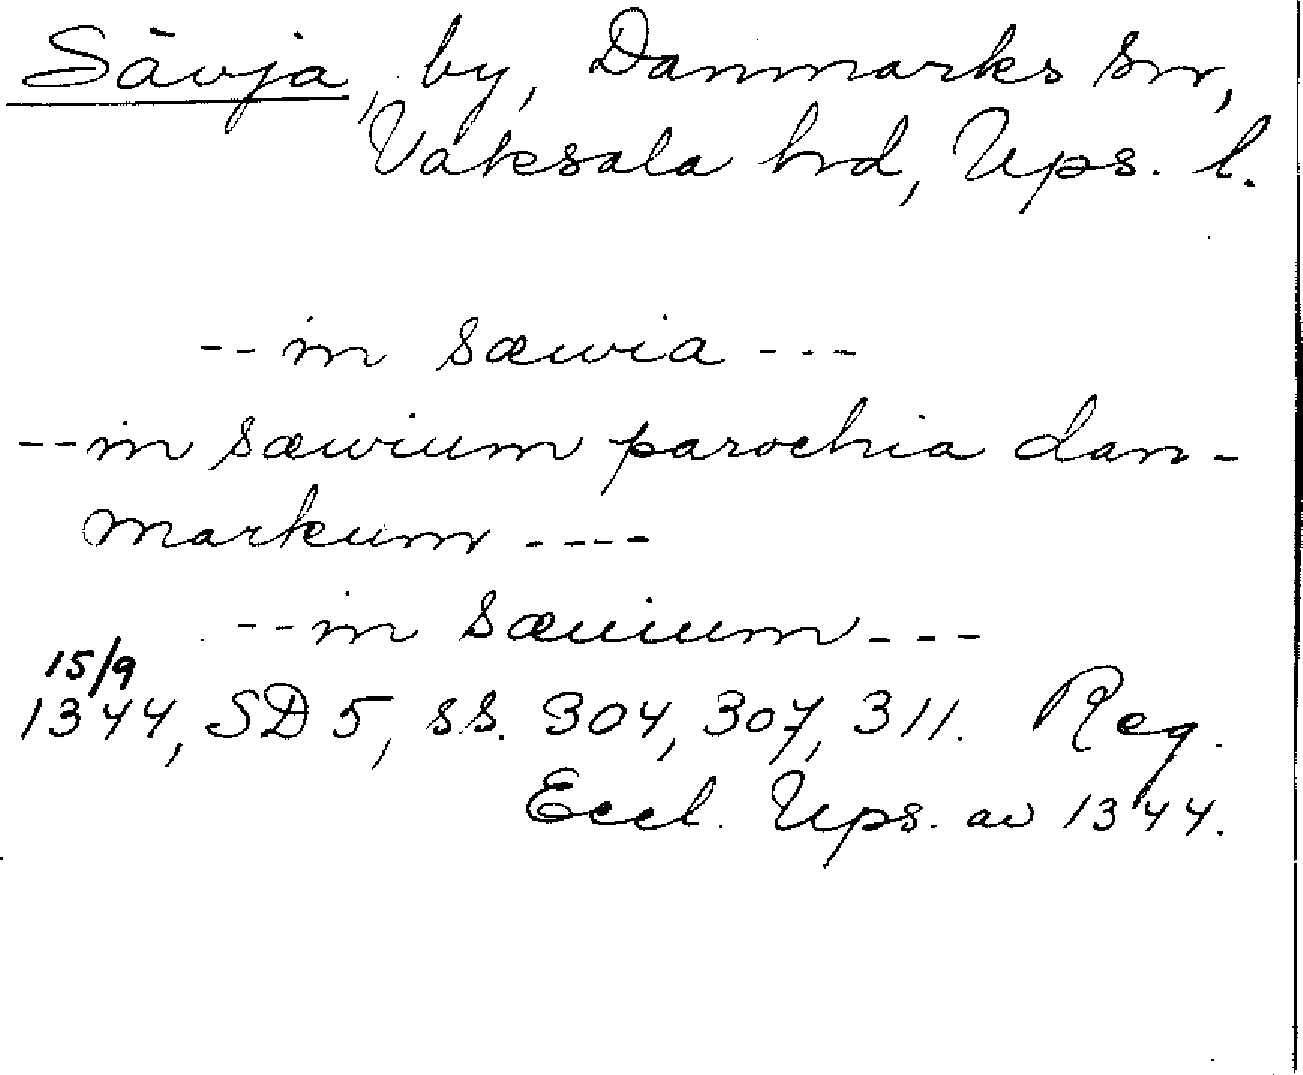 Sävja, by, Danmarks sn,
Vaksala hd, Ups. l.
-- in sæwia ---
-- in sæwium parochia dan-
markum ----
-- in sæuium ---
15/9
1344, SD 5, ss. 304, 307, 311. Reg.
Eccl. Ups. av 1344.